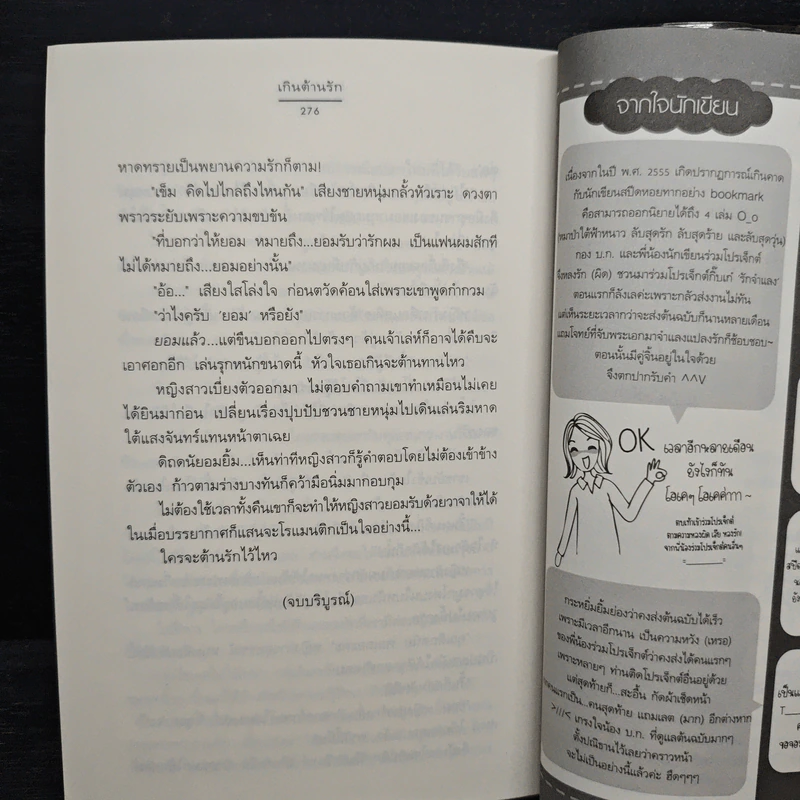 เกินต้านรัก
276
หาดทรายเป็นพยานความรักก็ตาม!
"เข็ม คิดไปไกลถึงไหนกัน" เสียงชายหนุ่มกลั้วหัวเราะ ดวงตา
พราวระยับเพราะความขบขัน
"ที่บอกว่าให้ยอม หมายถึง...ยอมรับว่ารักผม เป็นแฟนผมสักที
ไม่ได้หมายถึง...ยอมอย่างนั้น"
"อ้อ..." เสียงใสโล่งใจ ก่อนตวัดค้อนใส่เพราะเขาพูดกำกวม
"ว่าไงครับ 'ยอม' หรือยัง"
ยอมแล้ว...แต่ขืนบอกออกไปตรงๆ คนเจ้าเล่ห์ก็อาจได้คืบจะ
เอาศอกอีก เล่นรุกหนักขนาดนี้ หัวใจเธอเกินจะต้านทานไหว
หญิงสาวเบี่ยงตัวออกมา ไม่ตอบคำถามเขาทำเหมือนไม่เคย
ได้ยินมาก่อน เปลี่ยนเรื่องปุบปับชวนชายหนุ่มไปเดินเล่นริมหาด
ใต้แสงจันทร์แทนหน้าตาเฉย
ดิถดนัยอมยิ้ม...เห็นท่าทีหญิงสาวก็รู้คำตอบโดยไม่ต้องเข้าข้าง
ตัวเอง ก้าวตามร่างบางทันก็คว้ามือนิ่มมากอบกุม
ไม่ต้องใช้เวลาทั้งคืนเขาก็จะทำให้หญิงสาวยอมรับด้วยวาจาให้ได้
ในเมื่อบรรยากาศก็แสนจะโรแมนติกเป็นใจอย่างนี้...
ใครจะต้านรักไว้ไหว
(จบบริบูรณ์)
จากใจนักเขียน
เนื่องจากในปี พ.ศ. 2555 เกิดปรากฏการณ์เกินคาด
กับนักเขียนสปีดหอยทากอย่าง bookmark
คือสามารถออกนิยายได้ถึง 4 เล่ม O_o
(หมาป่าใต้ฟ้าหนาว ลับสุดรัก ลับสุดร้าย และลับสุดวุ่น)
กอง บ.ก. และพี่น้องนักเขียนร่วมโปรเจ็กต์
หลงรัก (ผิด) ชวนมาร่วมโปรเจ็กต์กิ๊บเก๋ 'รักจำแลง'
ตอนแรกก็ลังเลค่ะเพราะกลัวส่งงานไม่ทัน
แต่เห็นระยะเวลากว่าจะส่งต้นฉบับก็นานหลายเดือน
แถมโจทย์ที่จับพระเอกมาจำแลงแปลงรักก็ช้อบชอบ~
ตอนนั้นมีคู่จิ้นอยู่ในใจด้วย
จึงตกปากรับคำ ^^V
OK
เวลาอีกหลายเดือน
ยังไงก็ทัน
โอเคๆ โอเคค่าาา ~
กระหยิ่มยิ้มย่องว่าคงส่งต้นฉบับได้เร็ว
เพราะมีเวลาอีกนาน เป็นความหวัง (เหรอ)
ของพี่น้องร่วมโปรเจ็กต์ว่าคงส่งได้คนแรกๆ
เพราะหลายๆ ท่านติดโปรเจ็กต์อื่นอยู่ด้วย
แต่สุดท้ายก็...สะอื้น กัดผ้าเช็ดหน้า
คนแรกเป็น...คนสุดท้าย แถมเลต (มาก) อีกต่างหาก
>///< เกรงใจน้อง บ.ก. ที่ดูแลต้นฉบับมากๆ
ตั้งปณิธานไว้เลยว่าคราวหน้า
จะไม่เป็นอย่างนี้แล้วค่ะ ฮึดๆๆๆ